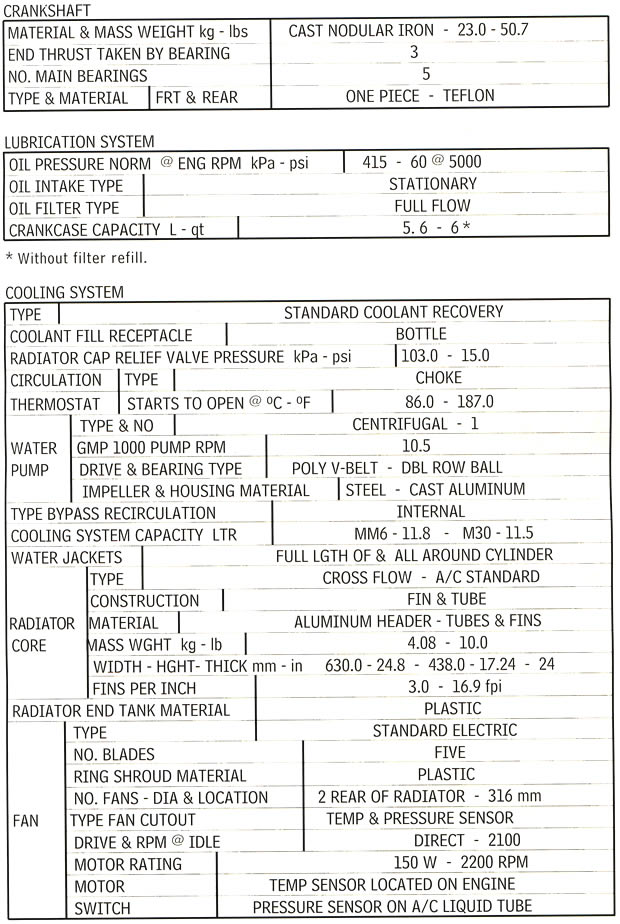 CRANKSHAFT
MATERIAL & MASS WEIGHT kg - lbs CAST NODULAR IRON - 23.0 - 50.7
END THRUST TAKEN BY BEARING 3
NO. MAIN BEARINGS 5
TYPE & MATERIAL FRT & REAR ONE PIECE - TEFLON
LUBRICATION SYSTEM
OIL PRESSURE NORM @ ENG RPM kPa - psi 415 - 60 @ 5000
OIL INTAKE TYPE STATIONARY
OIL FILTER TYPE FULL FLOW
CRANKCASE CAPACITY L - qt 5.6 - 6*
* Without filter refill.
COOLING SYSTEM
TYPE STANDARD COOLANT RECOVERY
COOLANT FILL RECEPTACLE BOTTLE
RADIATOR CAP RELIEF VALVE PRESSURE kPa - psi 103.0 - 15.0
CIRCULATION TYPE CHOKE
THERMOSTAT STARTS TO OPEN @ ºC - ºF 86.0 - 187.0
TYPE & NO CENTRIFUGAL - 1
WATER GMP 1000 PUMP RPM 10.5
PUMP DRIVE & BEARING TYPE POLY V-BELT - DBL ROW BALL
IMPELLER & HOUSING MATERIAL STEEL - CAST ALUMINUM
TYPE BYPASS RECIRCULATION INTERNAL
COOLING SYSTEM CAPACITY LTR MM6 - 11.8 - M30 - 11.5
WATER JACKETS FULL LGTH OF & ALL AROUND CYLINDER
TYPE CROSS FLOW - A/C STANDARD
CONSTRUCTION FIN & TUBE
RADIATOR MATERIAL ALUMINUM HEADER - TUBES & FINS
CORE MASS WGHT kg - lb 4.08 - 10.0
WIDTH - HGHT- THICK mm - in 630.0 - 24.8 - 438.0 - 17.24 - 24
FINS PER INCH 3.0 - 16.9 fpi
RADIATOR END TANK MATERIAL PLASTIC
TYPE STANDARD ELECTRIC
NO. BLADES FIVE
RING SHROUD MATERIAL PLASTIC
NO. FANS - DIA & LOCATION 2 REAR OF RADIATOR - 316 mm
FAN TYPE FAN CUTOUT TEMP & PRESSURE SENSOR
DRIVE & RPM @ IDLE DIRECT - 2100
MOTOR RATING 150 W - 2200 RPM
MOTOR TEMP SENSOR LOCATED ON ENGINE
SWITCH PRESSURE SENSOR ON A/C LIQUID TUBE